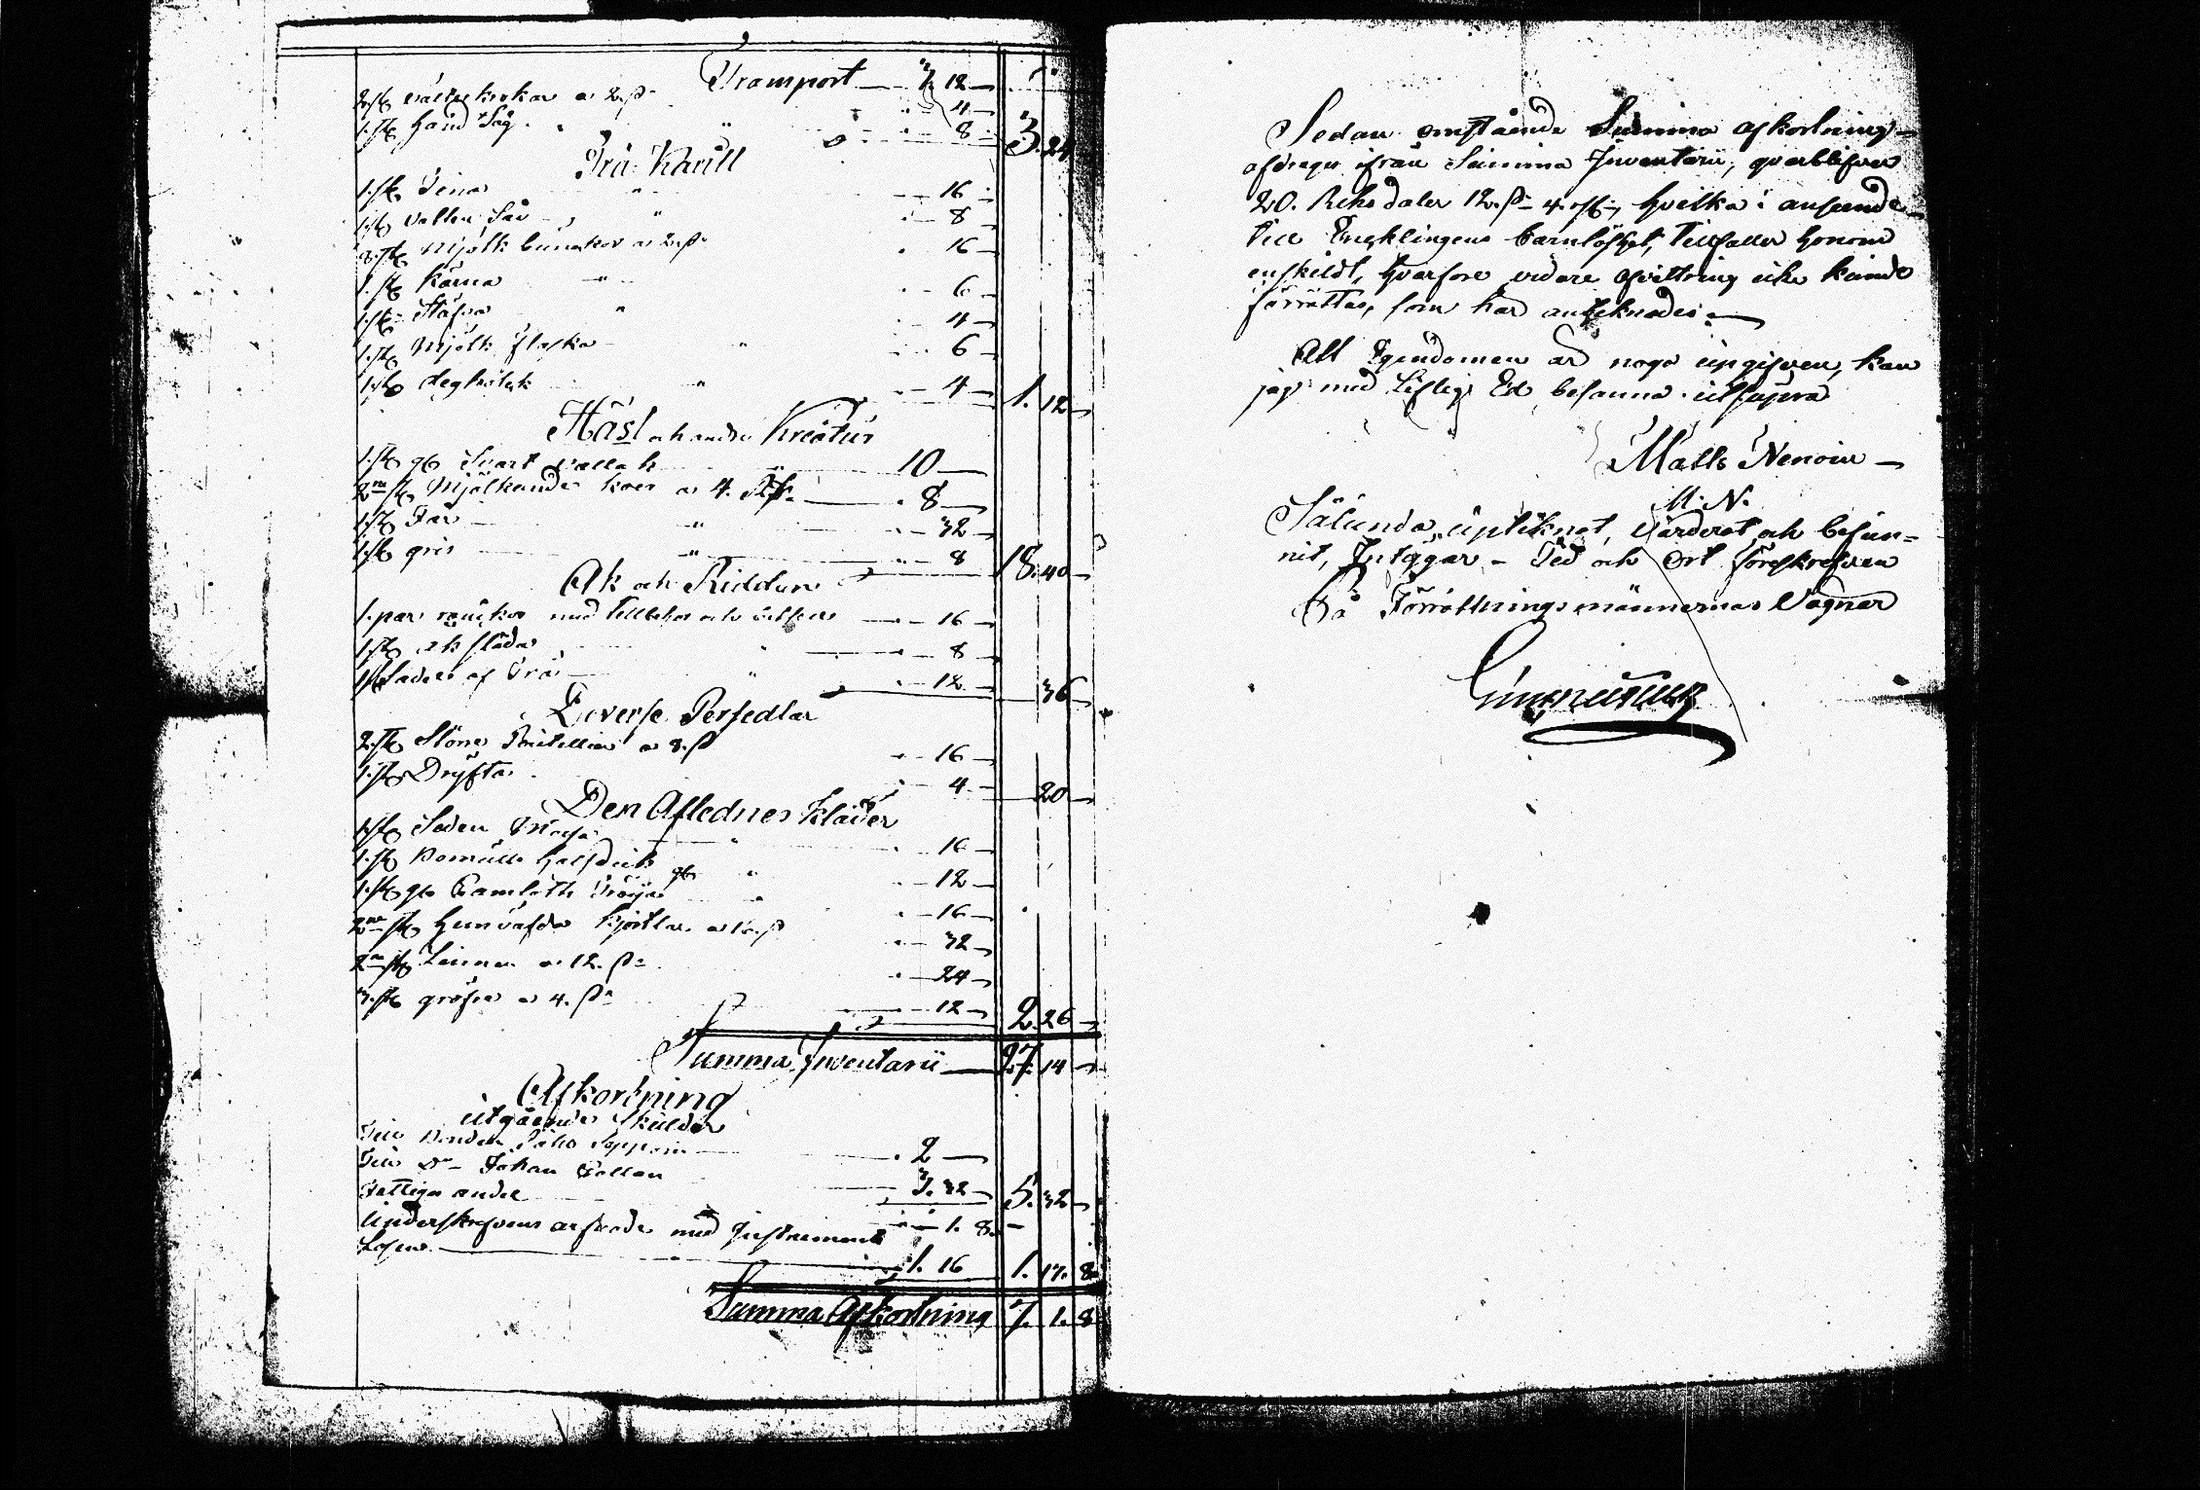 Transport — 7. 12 —
2. st. krokar a 2. ß — 4 —
1. st. hand Såg — 8 — 3. 24
Trä Kärill
1. st. Tina " — 16 —
1. st. vatten Såå " — 8 —
8. st. Mjölk bunckor a 2. ß — 16 —
1. st. Kärna " — 6 —
1. st. Stäfva " — 4 —
1. st. Mjölk flaska " — 6 —
1. st. degtråtk " — 4 — 1. 12 —
Häst och andre Kreatur
1. st. gl. Svart vallack " 10 —
2ne st. Mjölkande koer a 4. Rd. — 8 —
1. st. Får " — 32 —
1. st. gris " — 8 18. 40 —
Åk och Riddun
1. par med tillbehör och — 16 —
1. st. åk släda " — 8 —
1. st. Sadel af Trä " — 12 — 36 —
Diverse Persedlar
2. st. Stöne Buteillier a 8. ß — 16 —
1. st. Dryfta — 4 — 20 —
Den Aflednes kläder
1. st. Siden Tröija " — 16 —
1. st. Bomulls halsduk gl. " — 12 —
1. st. gl. Camlotts Tröija " — 16 —
2ne st. hemväfda kjortlar a 16. ß — 32 —
2ne st. Linnen a 12. ß — 24 —
3. st. a 4. ß — 12 — 2. 26 —
Summa Inventarii — 27. 14 —
Afkortning
utgående Skulder
Till Bonden Seppoin — 2 —
Till Do Johan — 3. 32 — 5. 32 —
Fattiga andel — 1. 8. —
Underskrefvens arfvode med Instrumentets
Lösen — 1. 16 1. 17. 8
Summa Afkortning 7. 1. 8
Sedan omstående Summa afkortning
afdrages ifrån Summa Inventarii, qvarblifver
20. Riksdaler 12. ß 4. rst., hvilka i anseende
till Enklingens barnlöshet, tillfaller honom
enskildt, hvarföre vidare afvittring icke kunde
förrättas, som här antecknades. —
Att Egendomen är noga uppgifven, kan
jag med Liflig Ed besanna. utsupra
Matts Nenoin —
M. N.
Sålunda upteknat, värderat och befun=
nit, Intygar — Tid och Ort föreskrefven
På Förrättningsmännernas Vägnar